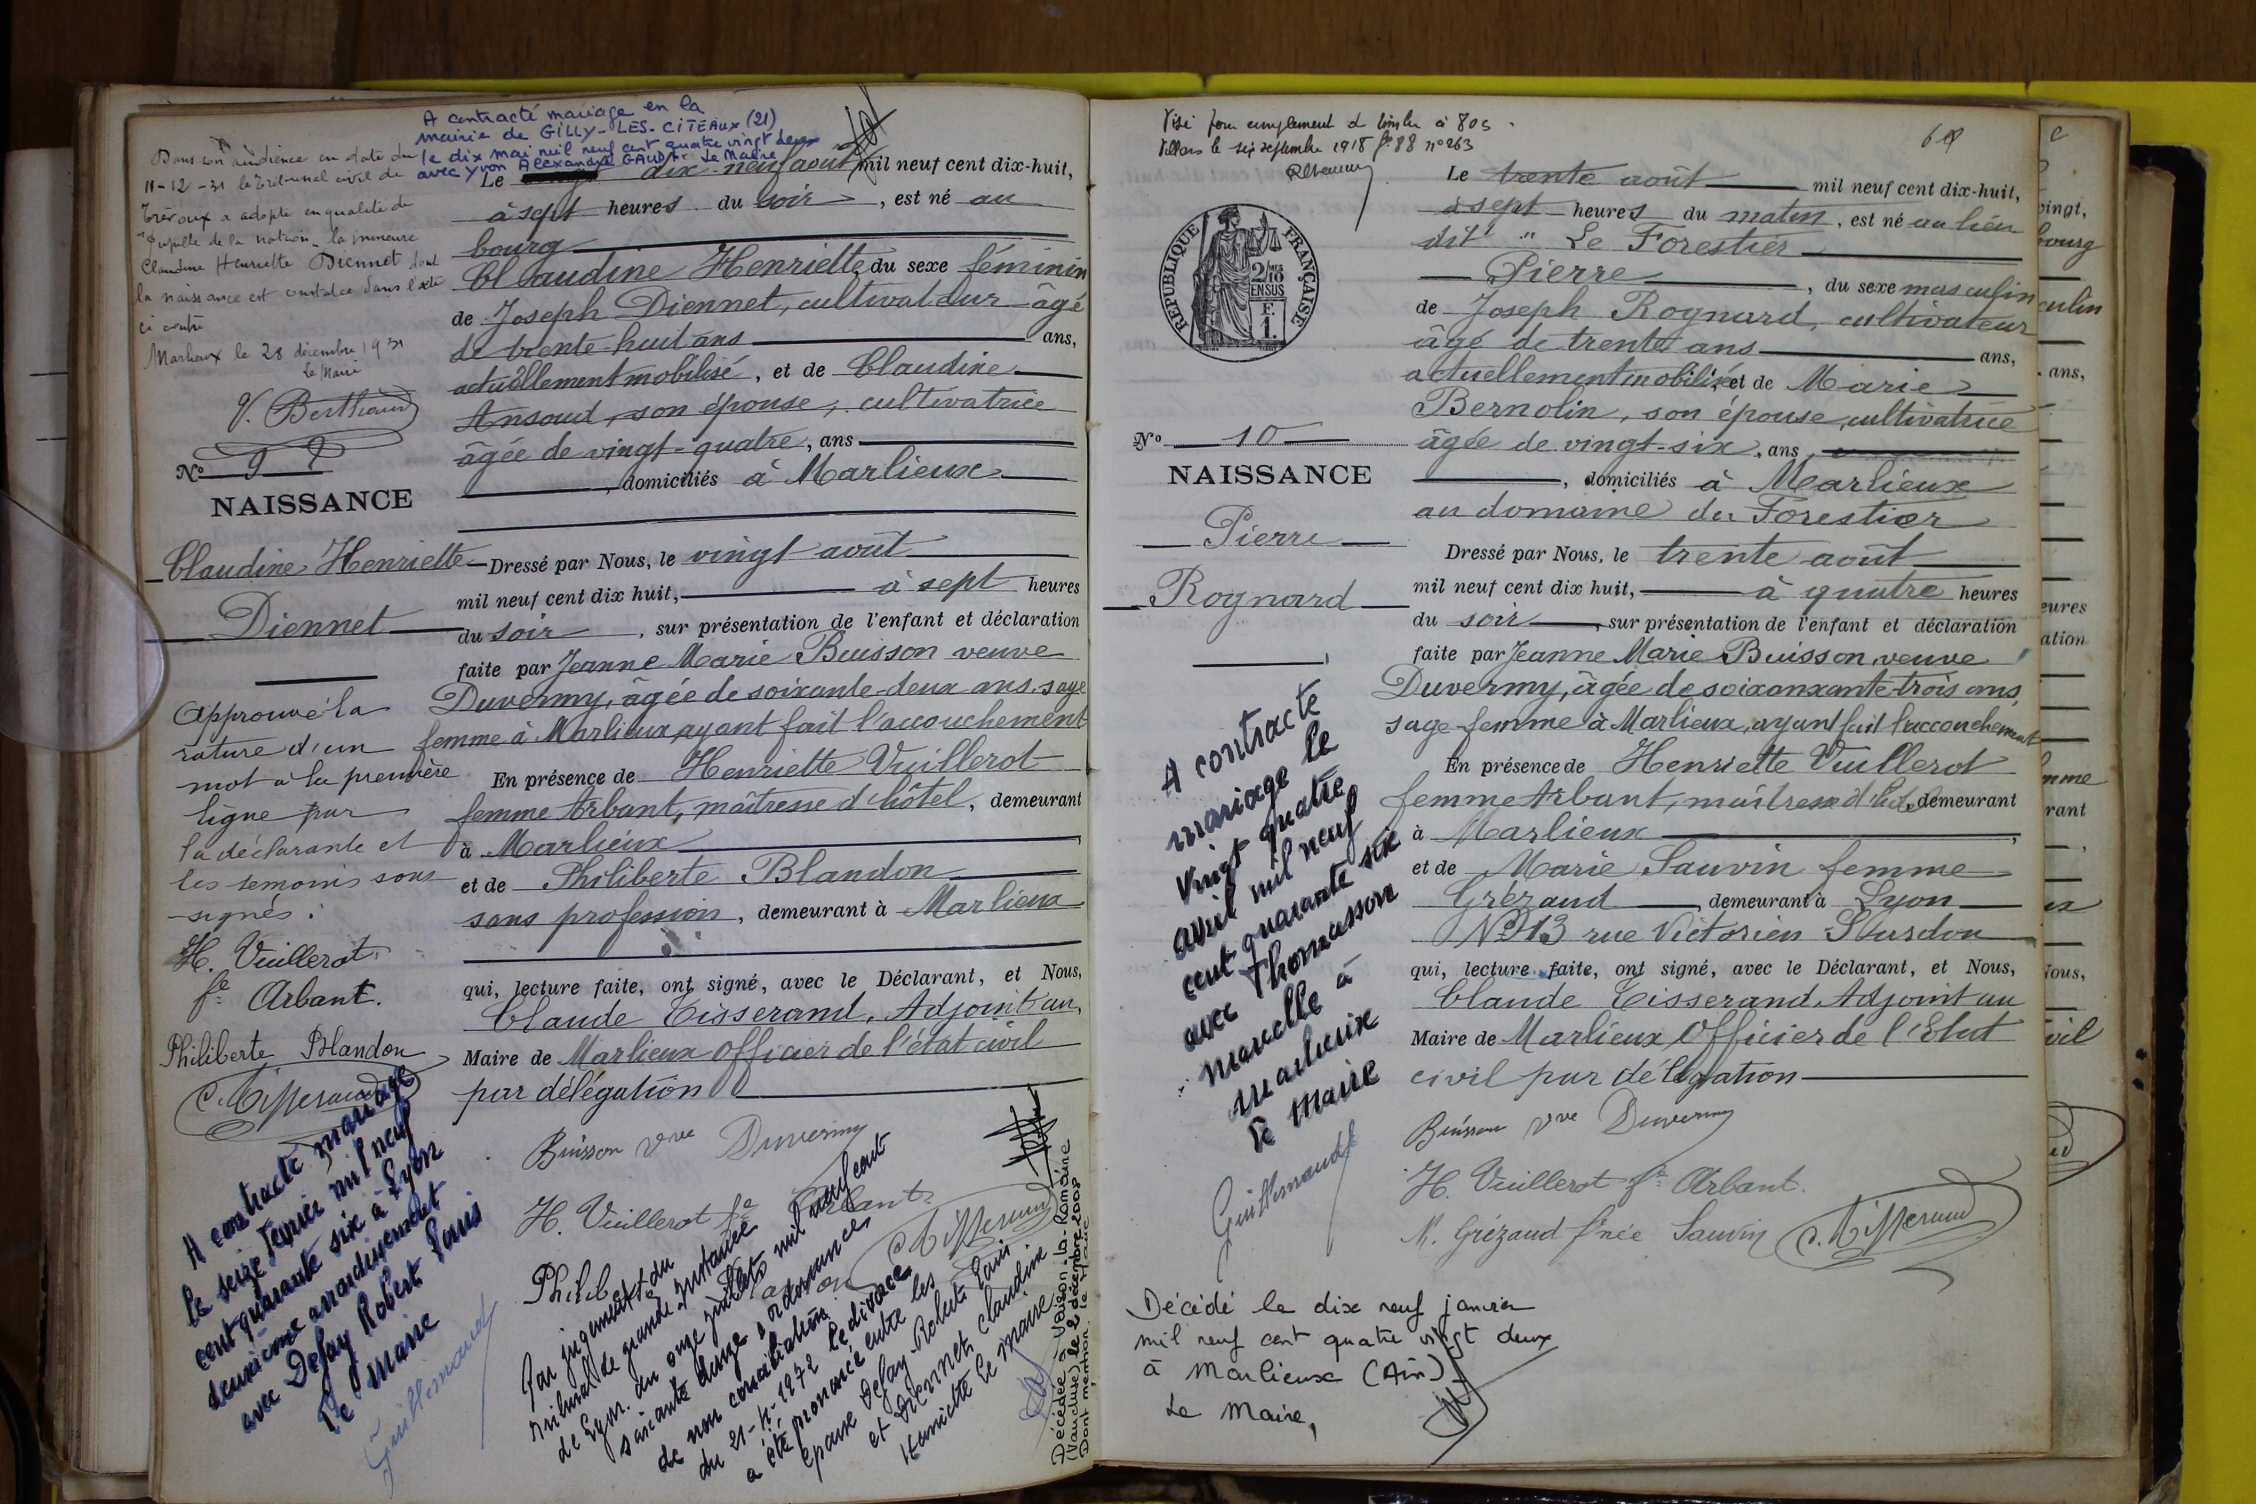 A contracté mariage en la
mairie de GILLY-LES-CITEAUX (21)
le dix mai mil neuf cent quatre vingt deux
avec Yvon Alexandre GAUD Le Maire
Dans son audience en date du
11-12-31 le Tribunal civil de
Trévoux a adopté en qualité de
pupille de la nation la mineure
Claudine Henriette Diennet dont
la naissance est constatée dans l'acte
ci contre
Marlieux le 28 décembre 1931
Le Maire
V. Berthaud
No 9
NAISSANCE
Claudine Henriette
Diennet
Approuvé la
rature d'un
mot à la première
ligne par
la déclarante et
les témoins sous
-signés :
H. Vuillerot
fe Arbant.
Philiberte Blandon
C. Tisserand
A contracté mariage
le seize février mil neuf
cent quarante six à Lyon
deuxième arrondissement
avec Defay Robert Louis
Le Maire
Guillemaud
Le dix-neuf août mil neuf cent dix-huit,
à sept heures du soir, est né au
bourg
Claudine Henriette du sexe féminin
de Joseph Diennet, cultivateur âgé
de trente-huit ans ans,
actuellement mobilisé, et de Claudine
Ansoud, son épouse, cultivatrice
âgée de vingt-quatre, ans
, domiciliés à Marlieux
Dressé par Nous, le vingt août
mil neuf cent dix huit, à sept heures
du soir, sur présentation de l'enfant et déclaration
faite par Jeanne Marie Buisson veuve
Duvermy, âgée de soixante-deux ans, sage
femme à Marlieux, ayant fait l'accouchement
En présence de Henriette Vuillerot
femme Arbant, maîtresse d'hôtel, demeurant
à Marlieux
et de Philiberte Blandon
sans profession, demeurant à Marlieux
qui, lecture faite, ont signé, avec le Déclarant, et Nous,
Claude Tisserand, Adjoint au
Maire de Marlieux Officier de l'état civil
par délégation
Buisson vve Duvermy
H. Vuillerot fe Arbant.
C. Tisserand
Philiberte Blandon
Par jugement du
Tribunal de grande Instance
de Lyon. du onze juillet mil neuf cent
soixante douze, ordonnance
de non conciliation
du 21-4-1972 le divorce
a été prononcé entre les
époux Defay-Robert Louis
et Diennet Claudine
Henriette Le Maire
Décédée à Vaison-la-Romaine
(Vaucluse) le 2 décembre 2008
Dont mention. le Maire
Visé pour complément de timbre à 80c
Villars le six septembre 1918 fo 88 no 263
RÉPUBLIQUE FRANÇAISE
2/10
EN SUS
F.
1.
No 10
NAISSANCE
Pierre
Rognard
A contracté
mariage le
vingt quatre
avril mil neuf
cent quarante six
avec Thomasson
Marcelle à
Marlieux
Le Maire
Guillemaud
Le trente août mil neuf cent dix-huit,
à sept heures du matin, est né au lieu
dit " Le Forestier
Pierre, du sexe masculin
de Joseph Rognard, cultivateur
âgé de trente ans ans,
actuellement mobilisé et de Marie
Bernolin, son épouse, cultivatrice
âgée de vingt-six, ans
, domiciliés à Marlieux
au domaine du Forestier
Dressé par Nous, le trente août
mil neuf cent dix huit, à quatre heures
du soir, sur présentation de l'enfant et déclaration
faite par Jeanne Marie Buisson, veuve
Duvermy, âgée de soixanxante-trois ans,
sage-femme à Marlieux, ayant fait l'accouchement
En présence de Henriette Vuillerot
femme Arbant, maîtresse d'hôtel, demeurant
à Marlieux,
et de Marie Sauvin femme
Grézaud, demeurant à Lyon
No 13 rue Victorien Sardou
qui, lecture faite, ont signé, avec le Déclarant, et Nous,
Claude Tisserand, Adjoint au
Maire de Marlieux, Officier de l'Etat
civil par délégation
Buisson vve Duvermy
H. Vuillerot fe Arbant.
M. Grézaud fe née Sauvin C. Tisserand
Décédé le dix neuf janvier
mil neuf cent quatre vingt deux
à Marlieux (Ain)
Le Maire,
vingt,
bourg
culin
ans,
eures
ation
mme
rant
Nous,
vil